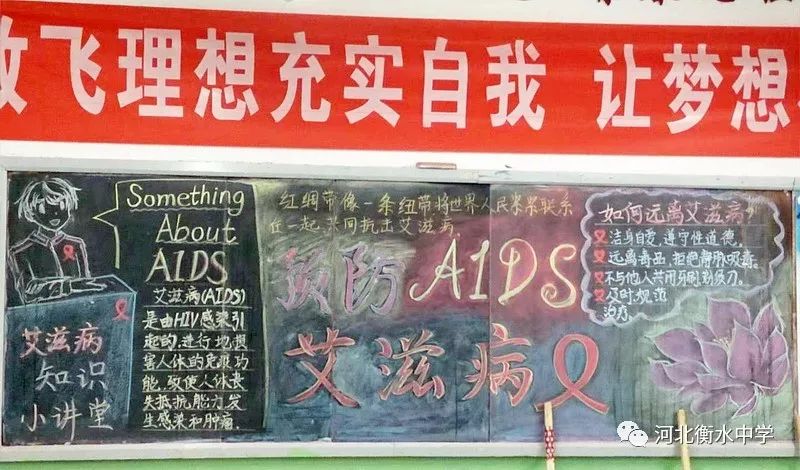 放飞理想充实自我 让梦想
Something
About
AIDS
艾滋病(AIDS)
是由HIV感染引
起的,进行地损
害人体的免疫功
能,致使人体丧
失抵抗能力发
生感染和肿瘤.
艾滋病
知识
小讲堂
红绸带像一条纽带将世界人民紧紧联系
在一起,共同抗击艾滋病.
预防AIDS
艾滋病
如何远离艾滋病?
洁身自爱,遵守性道德.
远离毒品,拒绝静脉吸毒.
不与他人共用牙刷刮须刀.
及时规范
治疗.
河北衡水中学